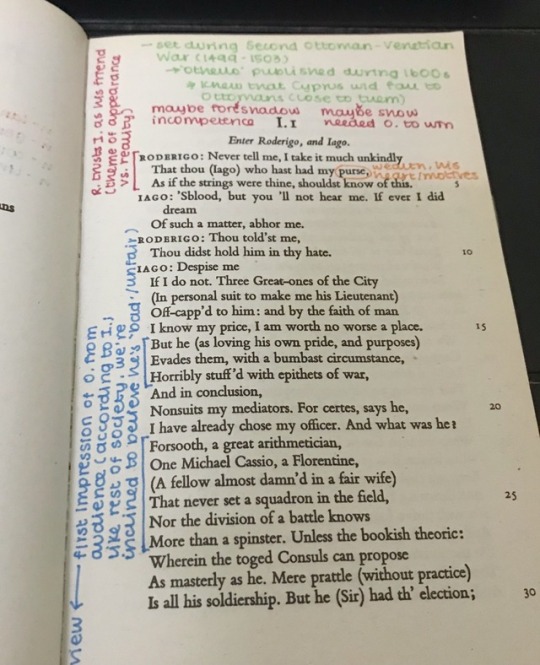 - set during Second Ottoman-Venetian
War (1499-1503)
→ 'Othello' published during 1600s
* knew that Cyprus wld fall to
Ottomans (close to them)
maybe foreshadow
incompetence
maybe show
needed O. to win
I.I
Enter Roderigo, and Iago.
R. trusts I. as his friend
(theme of appearance
vs. reality)
RODERIGO: Never tell me, I take it much unkindly
That thou (Iago) who hast had my purse,
wealth, his
heart/motives
As if the strings were thine, shouldst know of this. 5
IAGO: 'Sblood, but you 'll not hear me. If ever I did
dream
Of such a matter, abhor me.
RODERIGO: Thou told'st me,
Thou didst hold him in thy hate. 10
IAGO: Despise me
If I do not. Three Great-ones of the City
(In personal suit to make me his Lieutenant)
Off-capp'd to him: and by the faith of man
I know my price, I am worth no worse a place. 15
But he (as loving his own pride, and purposes)
Evades them, with a bumbast circumstance,
Horribly stuff'd with epithets of war,
And in conclusion,
Nonsuits my mediators. For certes, says he, 20
I have already chose my officer. And what was he?
Forsooth, a great arithmetician,
One Michael Cassio, a Florentine,
(A fellow almost damn'd in a fair wife)
That never set a squadron in the field, 25
Nor the division of a battle knows
More than a spinster. Unless the bookish theoric:
Wherein the toged Consuls can propose
As masterly as he. Mere prattle (without practice)
Is all his soldiership. But he (Sir) had th' election; 30
view ← first impression of O. from
audience (according to I.;
like rest of society, we're
inclined to believe he's 'bad'/unfair)